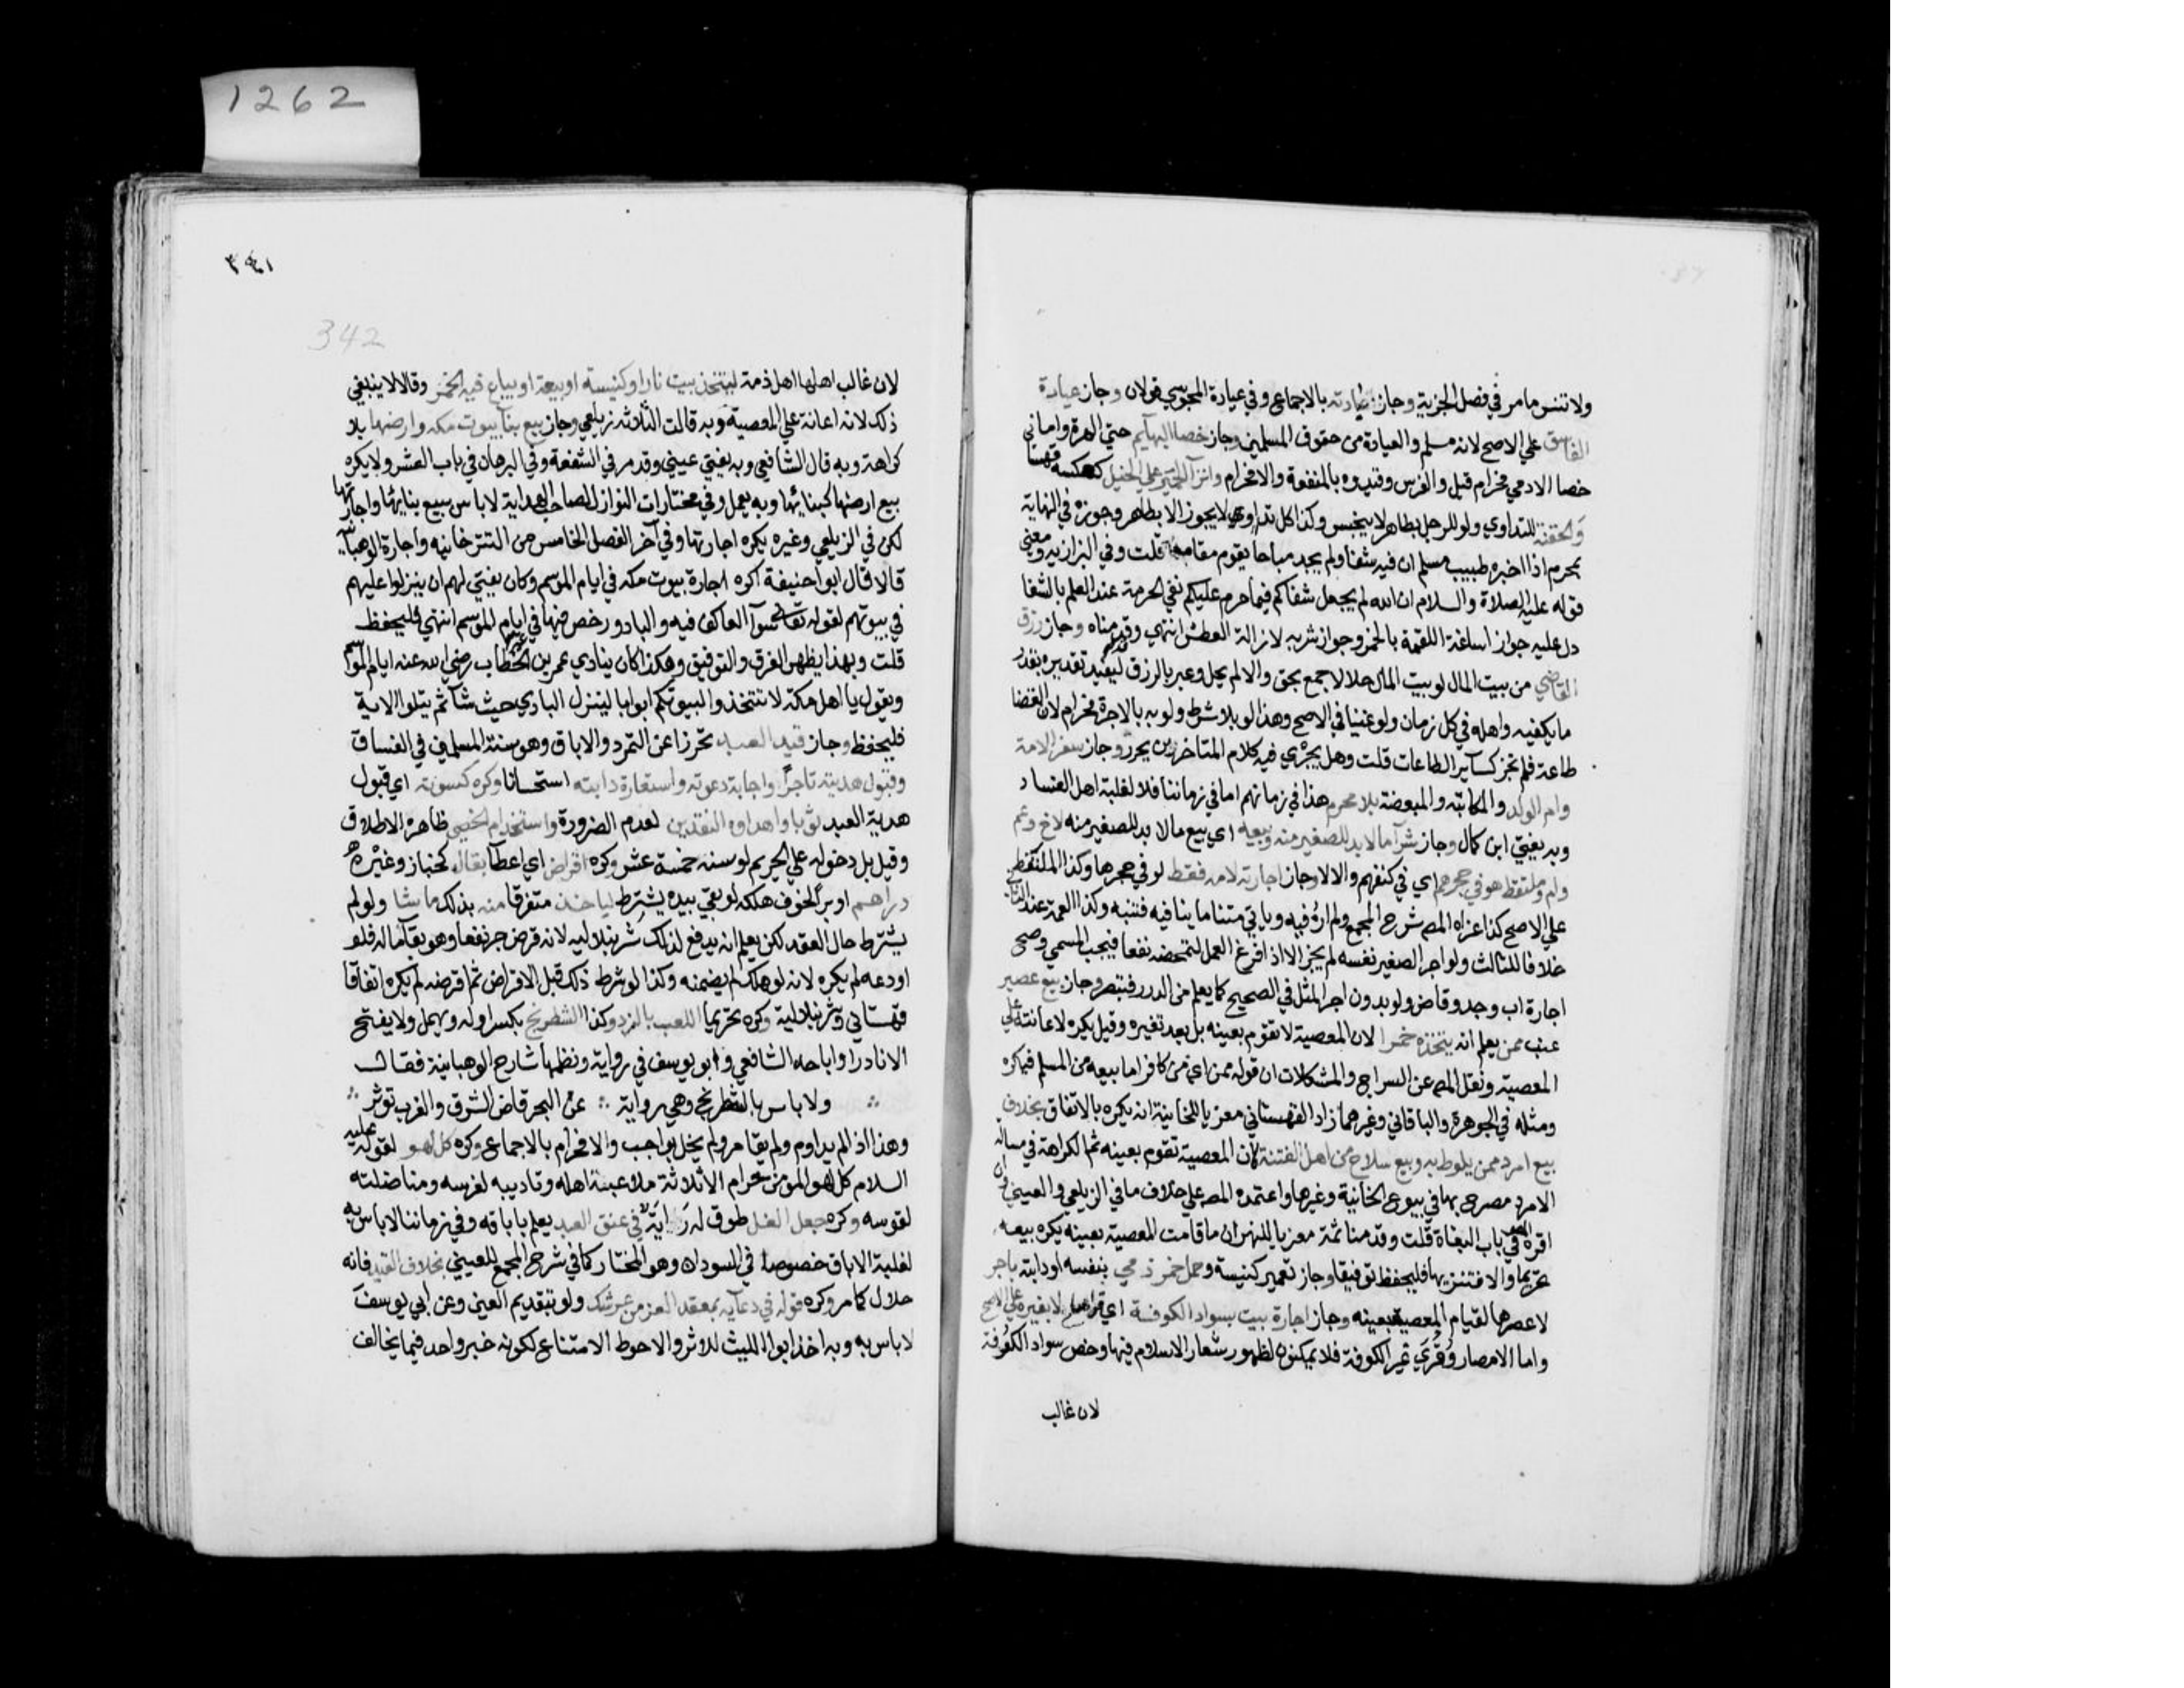 1262
ولا تنس ما مر في فصل الجزية وجاز عيادته بالاجماع وفي عيادة المجوسي قولان وجاز عيادة
الفاسق علي الاصح لانه مسلم والعيادة من حقوق المسلمين وجاز خصا البهايم حتي الهرة واما في
خصا الادمي فحرام قيل والفرس وقيدوه بالمنفعة والا فحرام وانزآ الحمير علي الخيل كعكسه قهستا
والحقنة للتداوي ولو للرجل بطاهر لا بنجس وكذا كل تداوي لا يجوز الا بطاهر وجوزه في النهاية
بمحرم اذا اخبره طبيب مسلم ان فيه شفا ولم يجد مباحا يقوم مقامه قلت وفي البزازيه ومعني
قوله عليه الصلاة والسلام ان الله لم يجعل شفاكم فيما حرم عليكم نفي الحرمة عند العلم بالشفا
دل عليه جواز اساغة اللقمة بالخمر وجواز شربه لازالة العطش انتهي وقد مناه وجاز رزق
القاضي من بيت المال لو بيت المال حلالا جمع بحق والا لم يحل وعبر بالرزق ليفيد تقديره بقدر
ما يكفيه واهله في كل زمان ولو غنيا في الاصح وهذا لو بلا شرط ولو به بالاجرة فحرام لان القضا
طاعة فلم تجز كسآير الطاعات قلت وهل يجري فيه كلام المتاخرين يحرر وجاز سفر الامة
وام الولد والمكاتبه والمبعضة بلا محرم هذا في زمانهم اما في زماننا فلا لغلبة اهل الفساد
وبه يفتي ابن كمال وجاز شرآ ما لا بد للصغير منه وبيعه اي بيع ما لا بد للصغير منه لاخ وعم
وام وملتقط هو في حجرهم اي في كنفهم والا لا وجاز اجارته لامه فقط لو في حجرها وكذا الملتقط
علي الاصح كذا عزاه المص شرح المجمع ولم اره فيه وياتي متنا ما ينافيه فتنبه وكذا العمة عند الثاني
خلافا للثالث ولو اجر الصغير نفسه لم يجز الا اذا فرغ العمل لتمحضه نفعا فيجب المسمي وصح
اجارة اب وجد وقاض ولو بدون اجر المثل في الصحيح كما يعلم من الدرر فتبصر وجاز بيع عصير
عنب ممن يعلم انه يتخذه خمرا لان المعصية لا تقوم بعينه بل بعد تغيره وقيل يكره لاعانته علي
المعصية ونقل المص عن السراج والمشكلات ان قوله ممن اي من كافر اما بيعه من المسلم فيكره
ومثله في الجوهرة والباقاني وغيرهما زاد القهستاني معزيا للخانية انه يكره بالاتفاق بخلاف
بيع امرد ممن يلوط به وبيع سلاح من اهل الفتنة لان المعصية تقوم بعينه ثم الكراهة في مسالة
الامرد مصرح بها في بيوع الخانية وغيرها واعتمده المص علي خلاف ما في الزيلعي والعيني وان
اقره المص في باب البغاة قلت وقدمنا ثمة معزيا للنهر ان ما قامت المعصية بعينه يكره بيعه
تحريما والا فتنزيها فليحفظ توفيقا وجاز تعمير كنيسة وحمل خمر ذمي بنفسه او دابته باجر
لا عصرها لقيام المعصية بعينه وجاز اجارة بيت بسواد الكوفة اي قراها لا بغيره علي الاصح
واما الامصار وقري غير الكوفة فلا يمكنون لظهور شعار الاسلام فيها وخص سواد الكوفة
لان غالب
٣٤١
342
لان غالب اهلها اهل ذمة ليتخذ بيت نار او كنيسة او بيعة او يباع فيه الخمر وقالا لا ينبغي
ذلك لانه اعانة علي المعصية وبه قالت الثلاثه زيلعي وجاز بيع بنآ بيوت مكه وارضها بلا
كراهة وبه قال الشافعي وبه يفتي عيني وقد مر في الشفعة وفي البرهان في باب العشر ولا يكره
بيع ارضها كبنائها وبه يعمل وفي مختارات النوازل لصاحب الهداية لا باس ببيع بنايها واجارتها
لكن في الزيلعي وغيره يكره اجارتها وفي آخر الفصل الخامس من التترخانيه واجارة الوهبانيه
قالا قال ابو حنيفة اكره اجارة بيوت مكه في ايام الموسم وكان يفتي لهم ان ينزلوا عليهم
في بيوتهم لقوله تعالي سوآ العاكف فيه والباد ورخص فيها في غير ايام الموسم انتهي فليحفظ
قلت وبهذا يظهر الفرق والتوفيق وهكذا كان ينادي عمر بن الخطاب رضي الله عنه ايام الموسم
ويقول يا اهل مكة لا تتخذوا لبيوتكم ابوابا لينزل البادي حيث شآ ثم يتلوا الاية
فليحفظ وجاز قيد العبد تحرزا عن التمرد والاباق وهو سنة المسلمين في الفساق
وقبول هديته تاجراً واجابة دعوته واستعارة دابته استحسانا وكره كسوته اي قبول
هدية العبد ثوبا واهداوه النقدين لعدم الضرورة واستخدام الخصي ظاهره الاطلاق
وقيل بل دخوله علي الحريم لو سنه خمسة عشر وكره اقراض اي اعطآ بقال كخباز وغيره
دراهم او برا لخوف هلكه لو بقي بيده يشترط لياخذ متفرقا منه بذلك ما شا ولو لم
يشترط حال العقد لكن يعلم انه يدفع لذلك شرنبلاليه لانه قرض جر نفعا وهو بقآ ماله فلو
اودعه لم يكره لانه لو هلك لم يضمنه وكذا لو شرط ذلك قبل الاقراض ثم اقرضه لم يكره اتفاقا
قهستاني وشرنبلالية وكره تحريما اللعب بالنرد وكذا الشطرنج بكسر اوله ويهمل ولا يفتح
الا نادرا واباحه الشافعي وابو يوسف في رواية ونظمها شارح الوهبانية فقال
ولا باس بالشطرنج وهي رواية عن البحر قاض الشرق والغرب توثر
وهذا اذا لم يداوم ولم يقامر ولم يخل بواجب والا فحرام بالاجماع وكره كل لهو لقوله عليه
السلام كل لهو المومن حرام الا ثلاثة ملاعبته اهله وتاديبه لفرسه ومناضلته
لقوسه وكره جعل الغل طوق له راية في عنق العبد يعلم باباقه وفي زماننا لا باس به
لغلبة الاباق خصوصا في السودان وهو المختار كما في شرح المجمع للعيني بخلاف القيد فانه
حلال كما مر وكره قوله في دعآيه بمعقد العز من عرشك ولو بتقديم العين وعن ابي يوسف
لا باس به وبه اخذ ابو الليث للاثر والاحوط الامتناع لكونه خبر واحد فيما يخالف